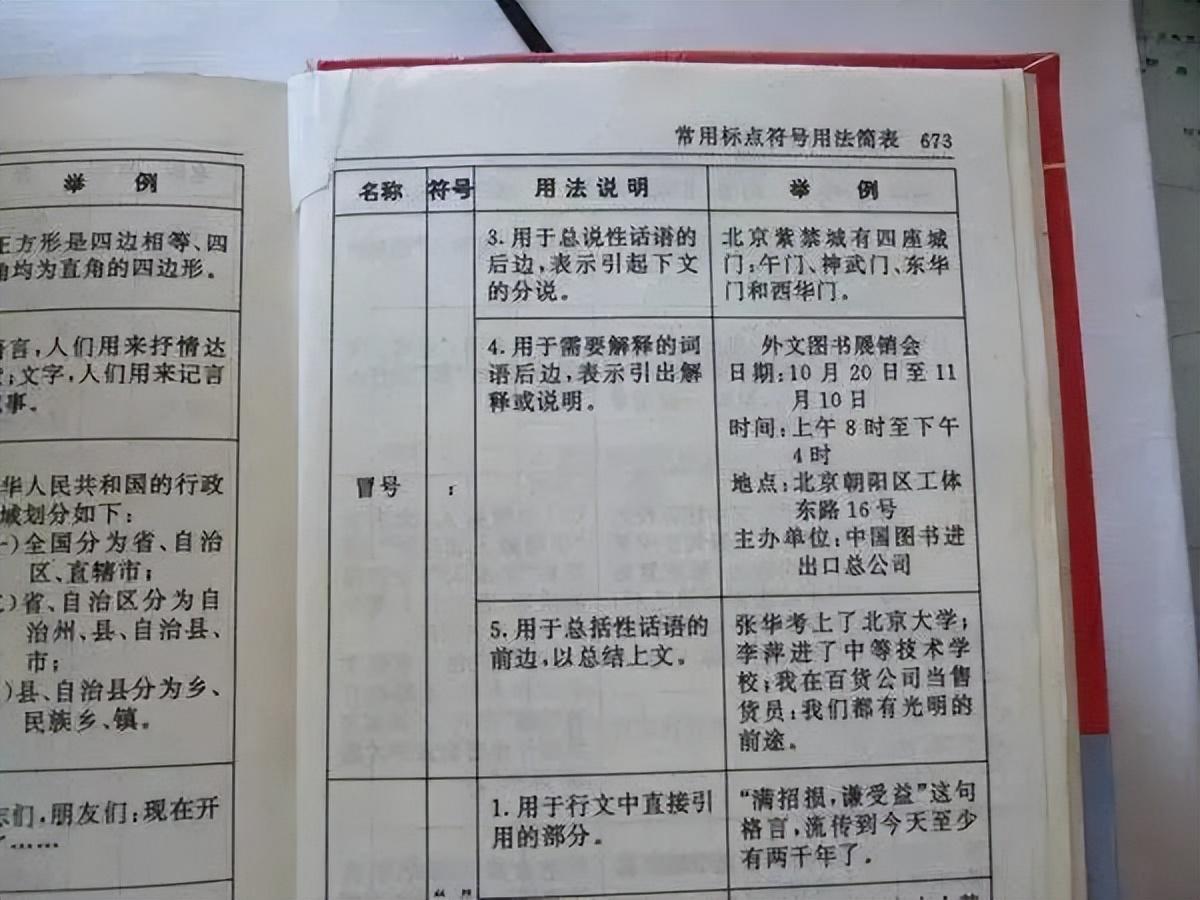 举 例
正方形是四边相等、四
角均为直角的四边形。
言,人们用来抒情达
;文字,人们用来记言
事。
华人民共和国的行政
域划分如下:
)全国分为省、自治
区、直辖市;
)省、自治区分为自
治州、县、自治县、
市;
)县、自治县分为乡、
民族乡、镇。
志们,朋友们:现在开
了……
常用标点符号用法简表 673
名称 符号 用法说明 举 例
3.用于总说性话语的
后边,表示引起下文
的分说。
北京紫禁城有四座城
门:午门、神武门、东华
门和西华门。
冒号 :
4.用于需要解释的词
语后边,表示引出解
释或说明。
外文图书展销会
日期:10月20日至11
月10日
时间:上午8时至下午
4时
地点:北京朝阳区工体
东路16号
主办单位:中国图书进
出口总公司
5.用于总括性话语的
前边,以总结上文。
张华考上了北京大学;
李萍进了中等技术学
校;我在百货公司当售
货员:我们都有光明的
前途。
1.用于行文中直接引
用的部分。
“满招损,谦受益”这句
格言,流传到今天至少
有两千年了。